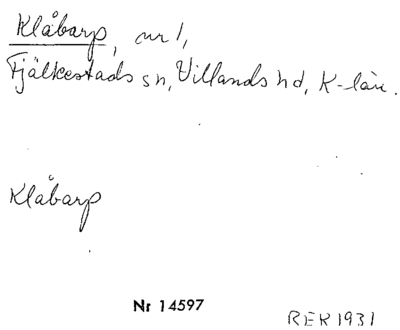 Klåbarp, nr 1,
Fjälkestads sn, Villands hd, K-län.
Klåbarp
Nr 14597
REK 1931